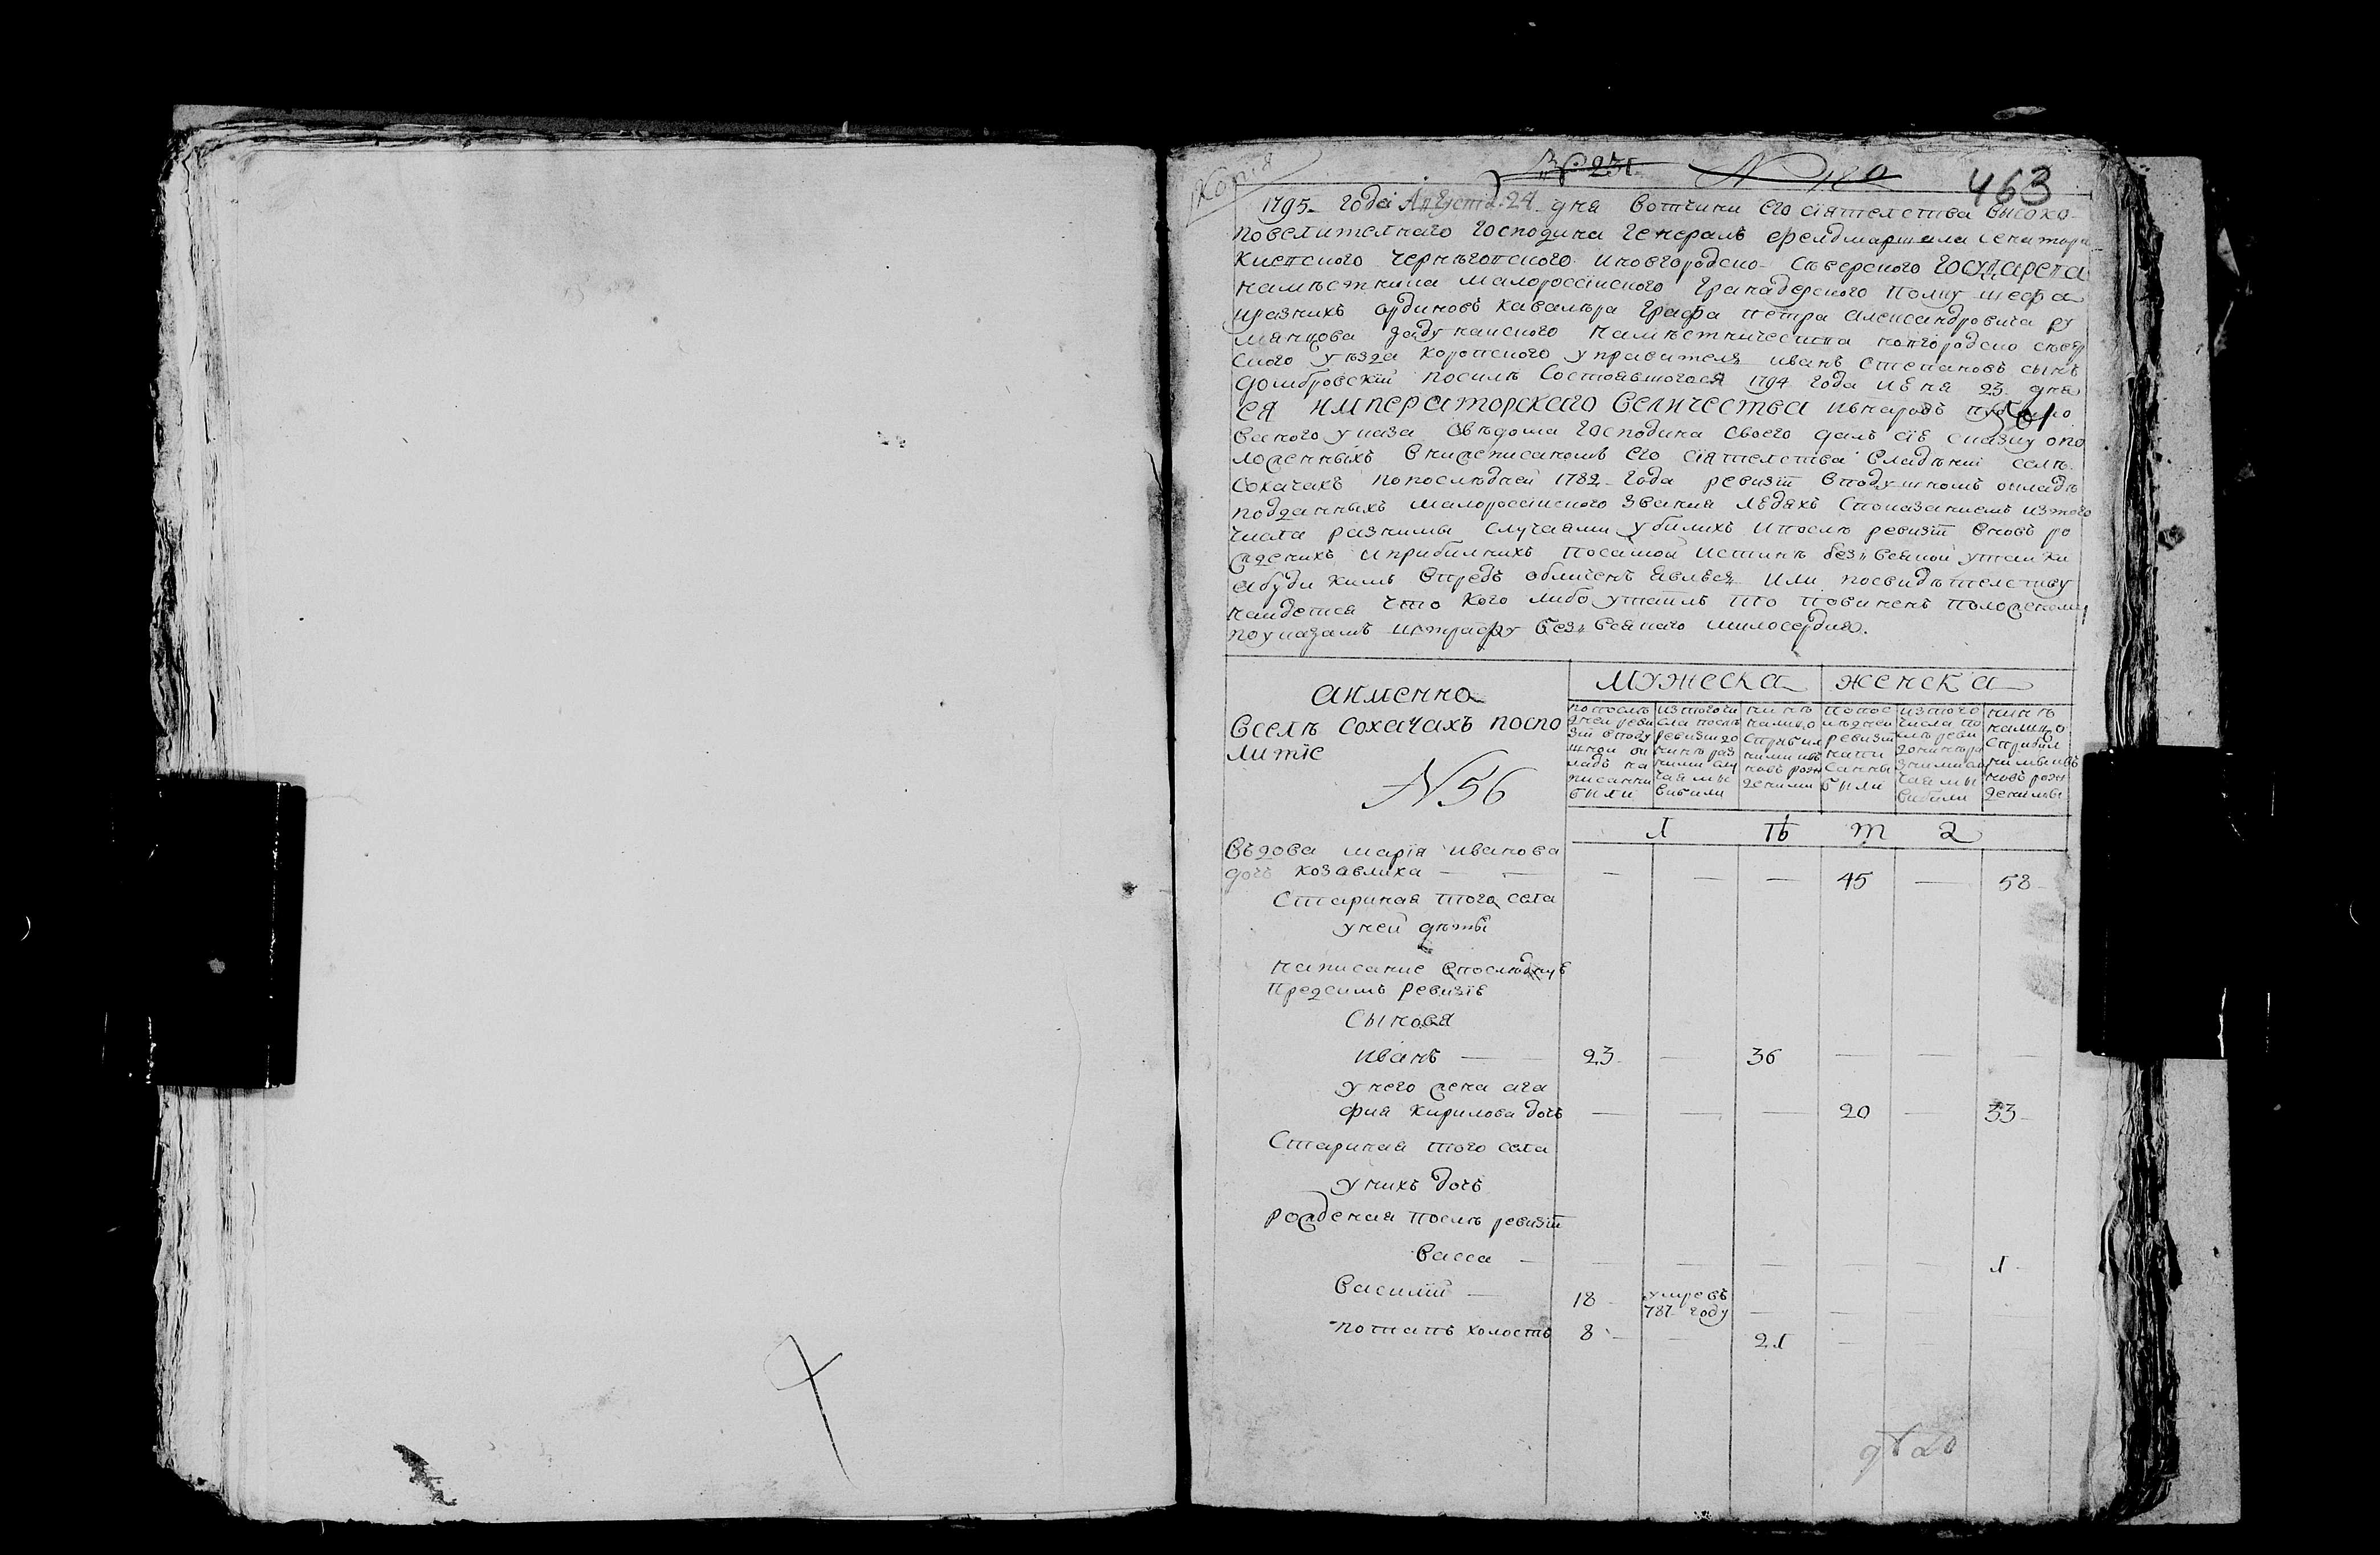 Копія
№ 231. № 180 463
1795 года Августа 24 дня вотчини его сіятелства высоко
повелителнаго господина генералъ фелдмаршала сенатора
киевского черниговского иновгородско сѣверского государева
намѣстника малоросійского гранадерского полку шефа
иразнихъ ординовъ кавалѣра графа петра александровича ру
мянцова задунайского намѣстничества новгородско сѣвер
ского уѣзда коропского управителя иванъ степановъ сынъ
домбровскій посилѣ состоявшогося 1794 года июня 23 дня
ея императорскаго величества ивнародъ публико
ваного указа свѣдома господина своего далъ сію сказку опо
ложенныхъ внижеписаномъ его сіятелства владѣніи селѣ
сохачахъ попослѣдней 1782 года ревизіи вподушномъ окладѣ
подданныхъ малоросійского званія людяхъ спказаниемъ изтого
числа разними случаями убилихъ ипослѣ ревизіи вновь ро
жденихъ иприбилихъ посамой истинѣ безъ всякой утайки
абуди кимъ впредь обличенъ явлюся или посвидѣтелству
найдется что кого либо утаилъ то повиненъ положеному
поуказамъ штрафу безъ всякаго милосердия.
аименно
мужеска женска
вселѣ сохачахъ поспо
литіе
№ 56
попослѣдней ревизіи вподушной окладъ написанни были
изтогочисла послѣ ревизіи донинѣ разними случаями вибили
нинѣ налицо сприбилими ивновь рожденими
попослѣдней ревизіи написанны были
изтого числа послѣ ревизіи донинѣ разними случаями вибили
нинѣ налицо сприбилими ивновь рожденими
Л ѣ т а
въдова марія иванова
дочь козавлиха — — — — — 45 — 58
стариная того села
уней дѣти
написание впослѣдную
предсимъ ревизію
сыновя
иванъ — 23 — 36 — — —
унего жена ага
фия кирилова дочь — — — 20 — 33
стариная того села
унихъ дочь
рожденая послѣ ревизіи
васса — — — — — — 1
василій — 18 умре въ
787 году — — — —
потапъ холостъ 8 — 21 — — —